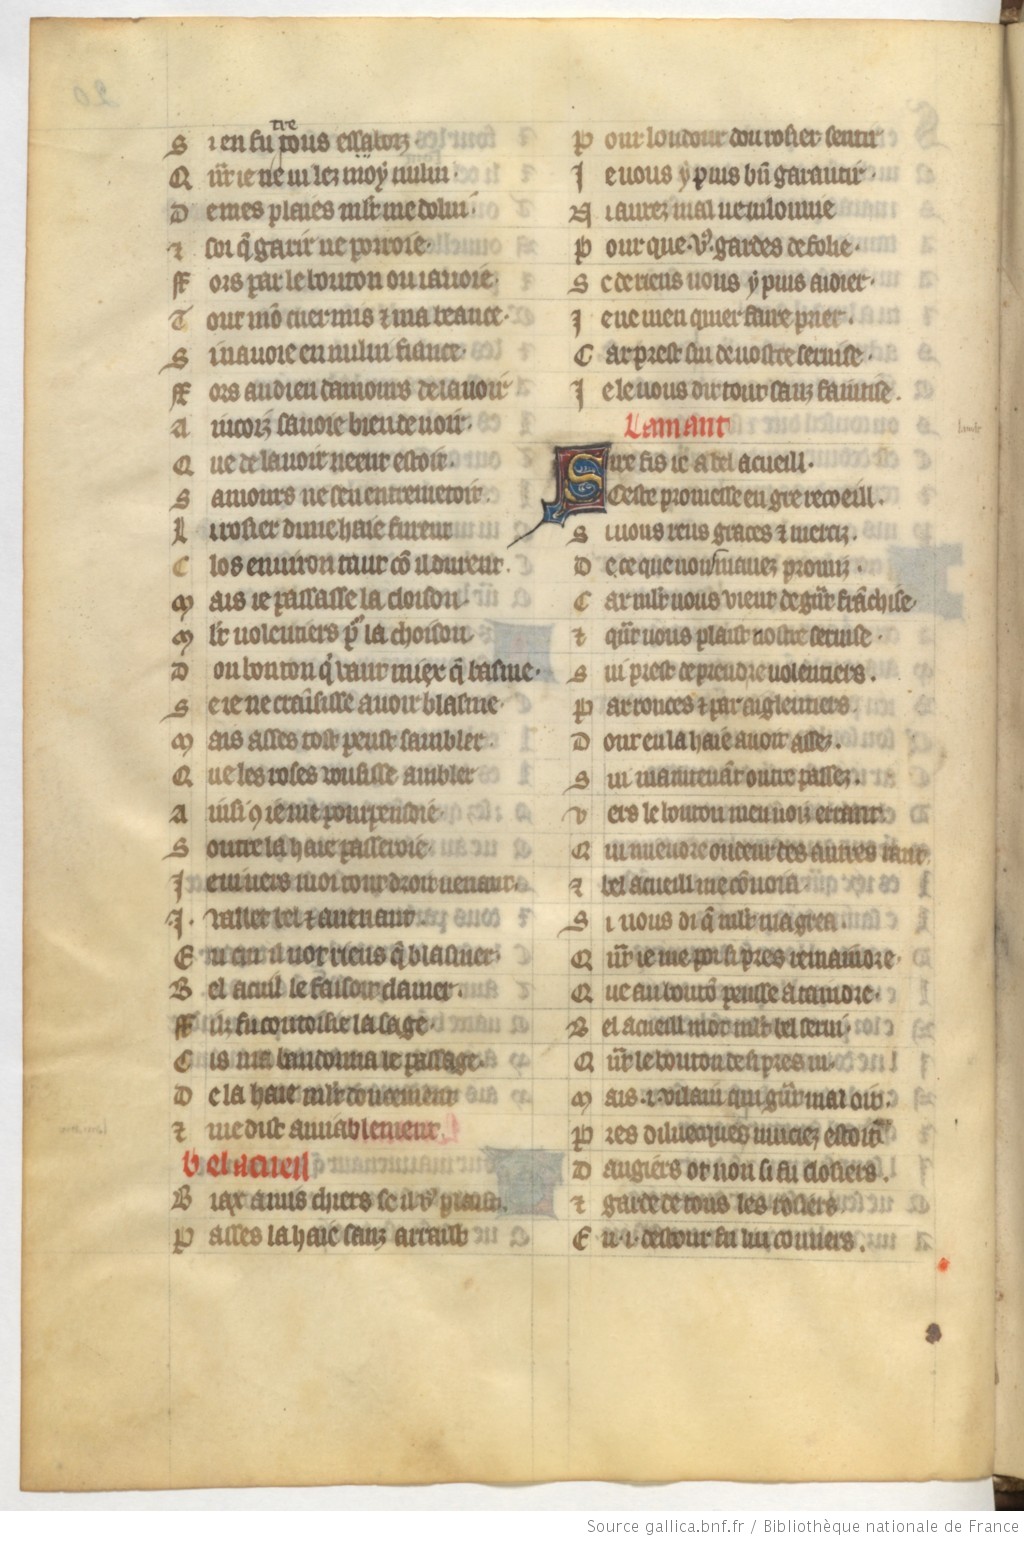 S i en fu tre tous essabors
Q ūt ie ne ui lez moy nului
D e mes plaies mlt me dolui
⁊ soi q̄ garir ne porroie
ff ors par le bouton ou iauoie
T out mō cuer mis ⁊ ma beance
S i nauoie en nului fiance
ff ors au dieu damours de lauoir
A incorz sauoie bien de uoir
Q ue de lauoir neeur estoir
S amours ne sen entremetoir
L i rosier dune haie furent
C los enuiron taut cō il durent
M ais ie passasse la cloison
M lt uolentiers p̄ la choison
D ou bouton q̄ vaut miex q̄ basme
S e ie ne crainsisse auoir blasme
M ais asses tost peust sambler
Q ue les roses vousisse ambler
A insi 9 ie me pourpensoie
S outre la haie passeroie
J e ui uers moi tout droit uenant
.J. vallet bel ⁊ auenant
E n qui il not riens q̄ blasmer
B el acuil se faisoit clamer
ff iz fu courtoisie la sage
C is ma bandonna le passage
D e la haie mlt doucement
⁊ me dist amiablement
B el acueil
B iax amis chiers se il v9 plaist
P asses la haie sanz arrest
P our loudour dou rosier sentir
J e uous y puis bn̄ garantir
N i aurez mal ne uilonnie
P our que v9 gardes de folie
S e de riens uous y puis aidier
J e ne men quier faire prier
C ar prest sui de uostre seruise
J e le uous dit tout sanz faintise
Lamant
Sire fis ie a bel acueill
Ceste promesse en gre recoeill
S i uous rens graces ⁊ merciz
D e ce que uous mauez promiz
C ar mlt uous vient de gr̄t franchise
⁊ qūt uous plaist uostre seruise
S ui prest de prendre uolentiers
P ar ronces ⁊ par aiglentiers
D ont en la haie auoit assez
S ui maintenāt outre passez
V ers le bouton men uoiz errant
Q ui mieudre oudeur des autres rant
⁊ bel acueill me cōuoia
S i uous di q̄ mlt magrea
Q ūt ie me poi si pres remaindre
Q ue au boutō peusse ataindre
B el acueill mot mlt bel serui
Q ūt le bouton de si pres ui
M ais .i. vilain qui gr̄t mal oit
P res diluecques muciez estoit
D angiers ot non si fu closiers
⁊ garde de tous les rosiers
E n .i. destour fu lui couuers
Source gallica.bnf.fr / Bibliothèque nationale de France